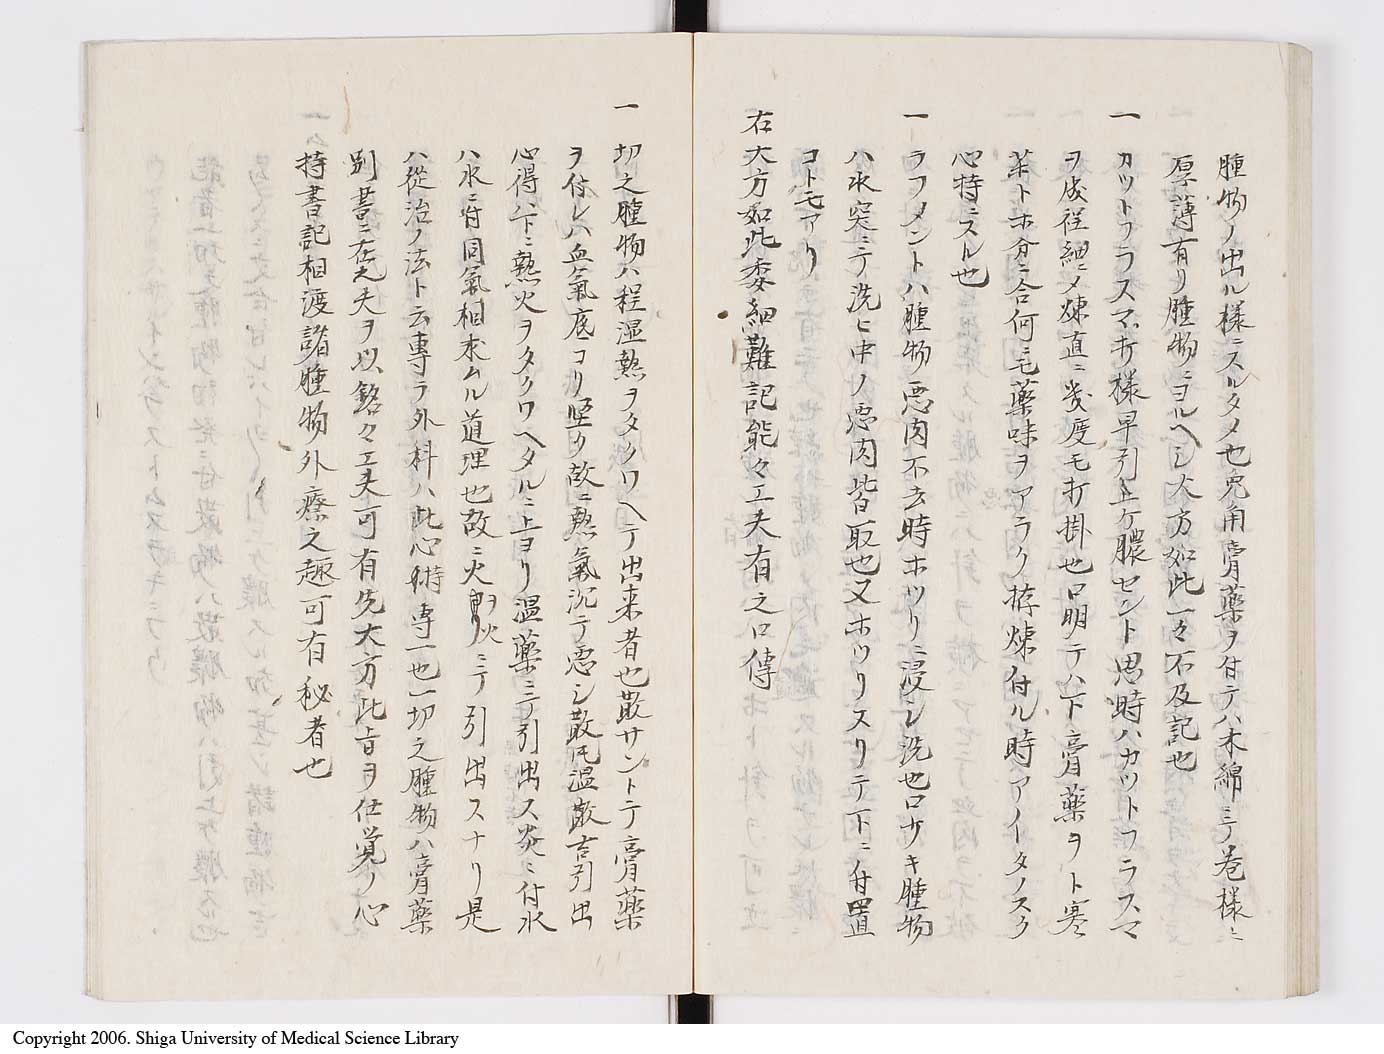 腫物ノ出ル様ニスルタメ也兎角膏薬ヲ付テハ木綿ニテ巻様ニ
厚薄有リ腫物ニヨルヘシ大方如此一々不及記也
一 カツトフラスマ打様早引上ケ膿セント思時ハカツトフラスマ
ヲ成程細ニメ煉直ニ幾度モ打掛也口明テハ下膏薬ヲト寒
茉トホ分ニ合何ニモ薬味ヲアラク拵煉付ル時アノータノスク
心持ニスル也
一 ラフメントハ腫物悪肉不去時ホツリニ浸シ洗也口サキ腫物
ハ水突ニテ洗ヒ中ノ悪肉皆取也又ホツリスリテ下ニ付置
コトモアリ
右大方如此委細難記能々工夫有之口傳
一 切之腫物ハ程湿熱ヲタクワヘテ出来者也散サントテ膏薬
ヲ付レハ血氣底コリ堅ク故ニ熱氣沉テ悪シ散凡温散吉引出
心得ハ下ニ熱火ヲタクワヘタルニ上ヨリ温薬ニテ引出ス炎ニ付水
ハ水ニ付同氣相求ムル道理也故ニ火ヲ火ニテ引出スナリ是
ハ從治ノ法ト云専ラ外科ハ此心術専一也一切之腫物ハ膏薬
別書ニ在之夫ヲ以銘々工夫可有先大方此旨ヲ仕覚ノ心
持書記相渡諸腫物外療之趣可有秘者也
Copyright 2006. Shiga University of Medical Science Library